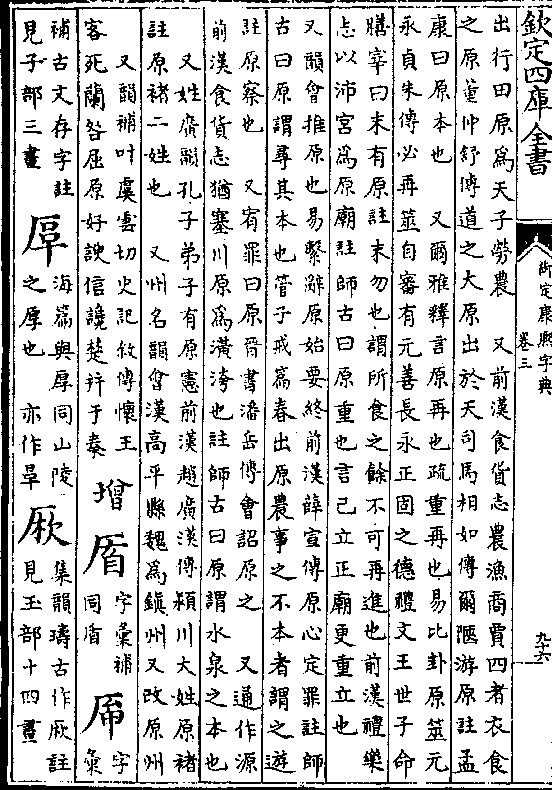 欽定四庫全書
御定康熙字典
卷三
九十六
出行田原爲天子勞農　又前漢食貨志農漁商賈四者衣食
之原董仲舒傳道之大原出於天司馬相如傳爾陿游原註孟
康曰原本也　又爾雅釋言原再也疏重再也易比卦原筮元
永貞朱傳必再筮自審有元善長永正固之德禮文王世子命
膳宰曰末有原註末勿也謂所食之餘不可再進也前漢禮樂
志以沛宮爲原廟註師古曰原重也言已立正廟更重立也
又韻會推原也易繫辭原始要終前漢薛宣傳原心定罪註師
古曰原謂尋其本也管子戒篇春出原農事之不本者謂之遊
註原察也　又宥罪曰原晉書潘岳傳會詔原之　又通作源
前漢食貨志猶塞川原爲潢洿也註師古曰原謂水泉之本也
又姓廣韻孔子弟子有原憲前漢趙廣漢傳潁川大姓原褚
註原褚二姓也　又州名韻會漢高平縣魏爲鎮州又改原州
又韻補叶虞雲切史記敘傳懷王
客死蘭咎屈原好諛信讒楚并于秦
增
字彙補
同盾
字
彙
補古文存字註
見子部三畫
海篇與厚同山陵
之厚也　亦作㫗
集韻璹古作註
見玉部十四畫